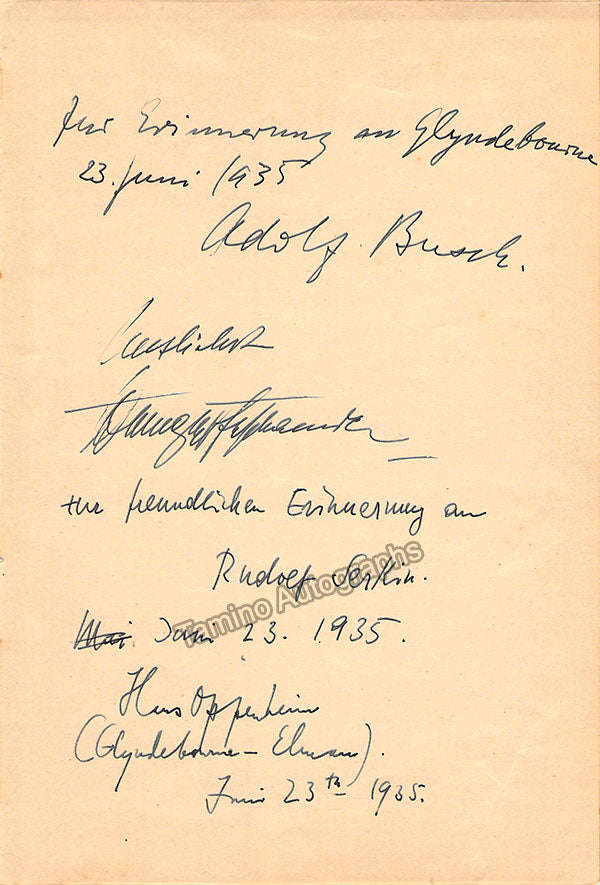 Zur Erinnerung an Glyndebourne
23. Juni 1935
Adolf Busch.
Herzlichst
zur freundlichen Erinnerung an
Rudolf Serkin.
Tamino Autographs
Mai Juni 23. 1935.
Hans Oppenheim
(Glyndebourne –
Juni 23th 1935.